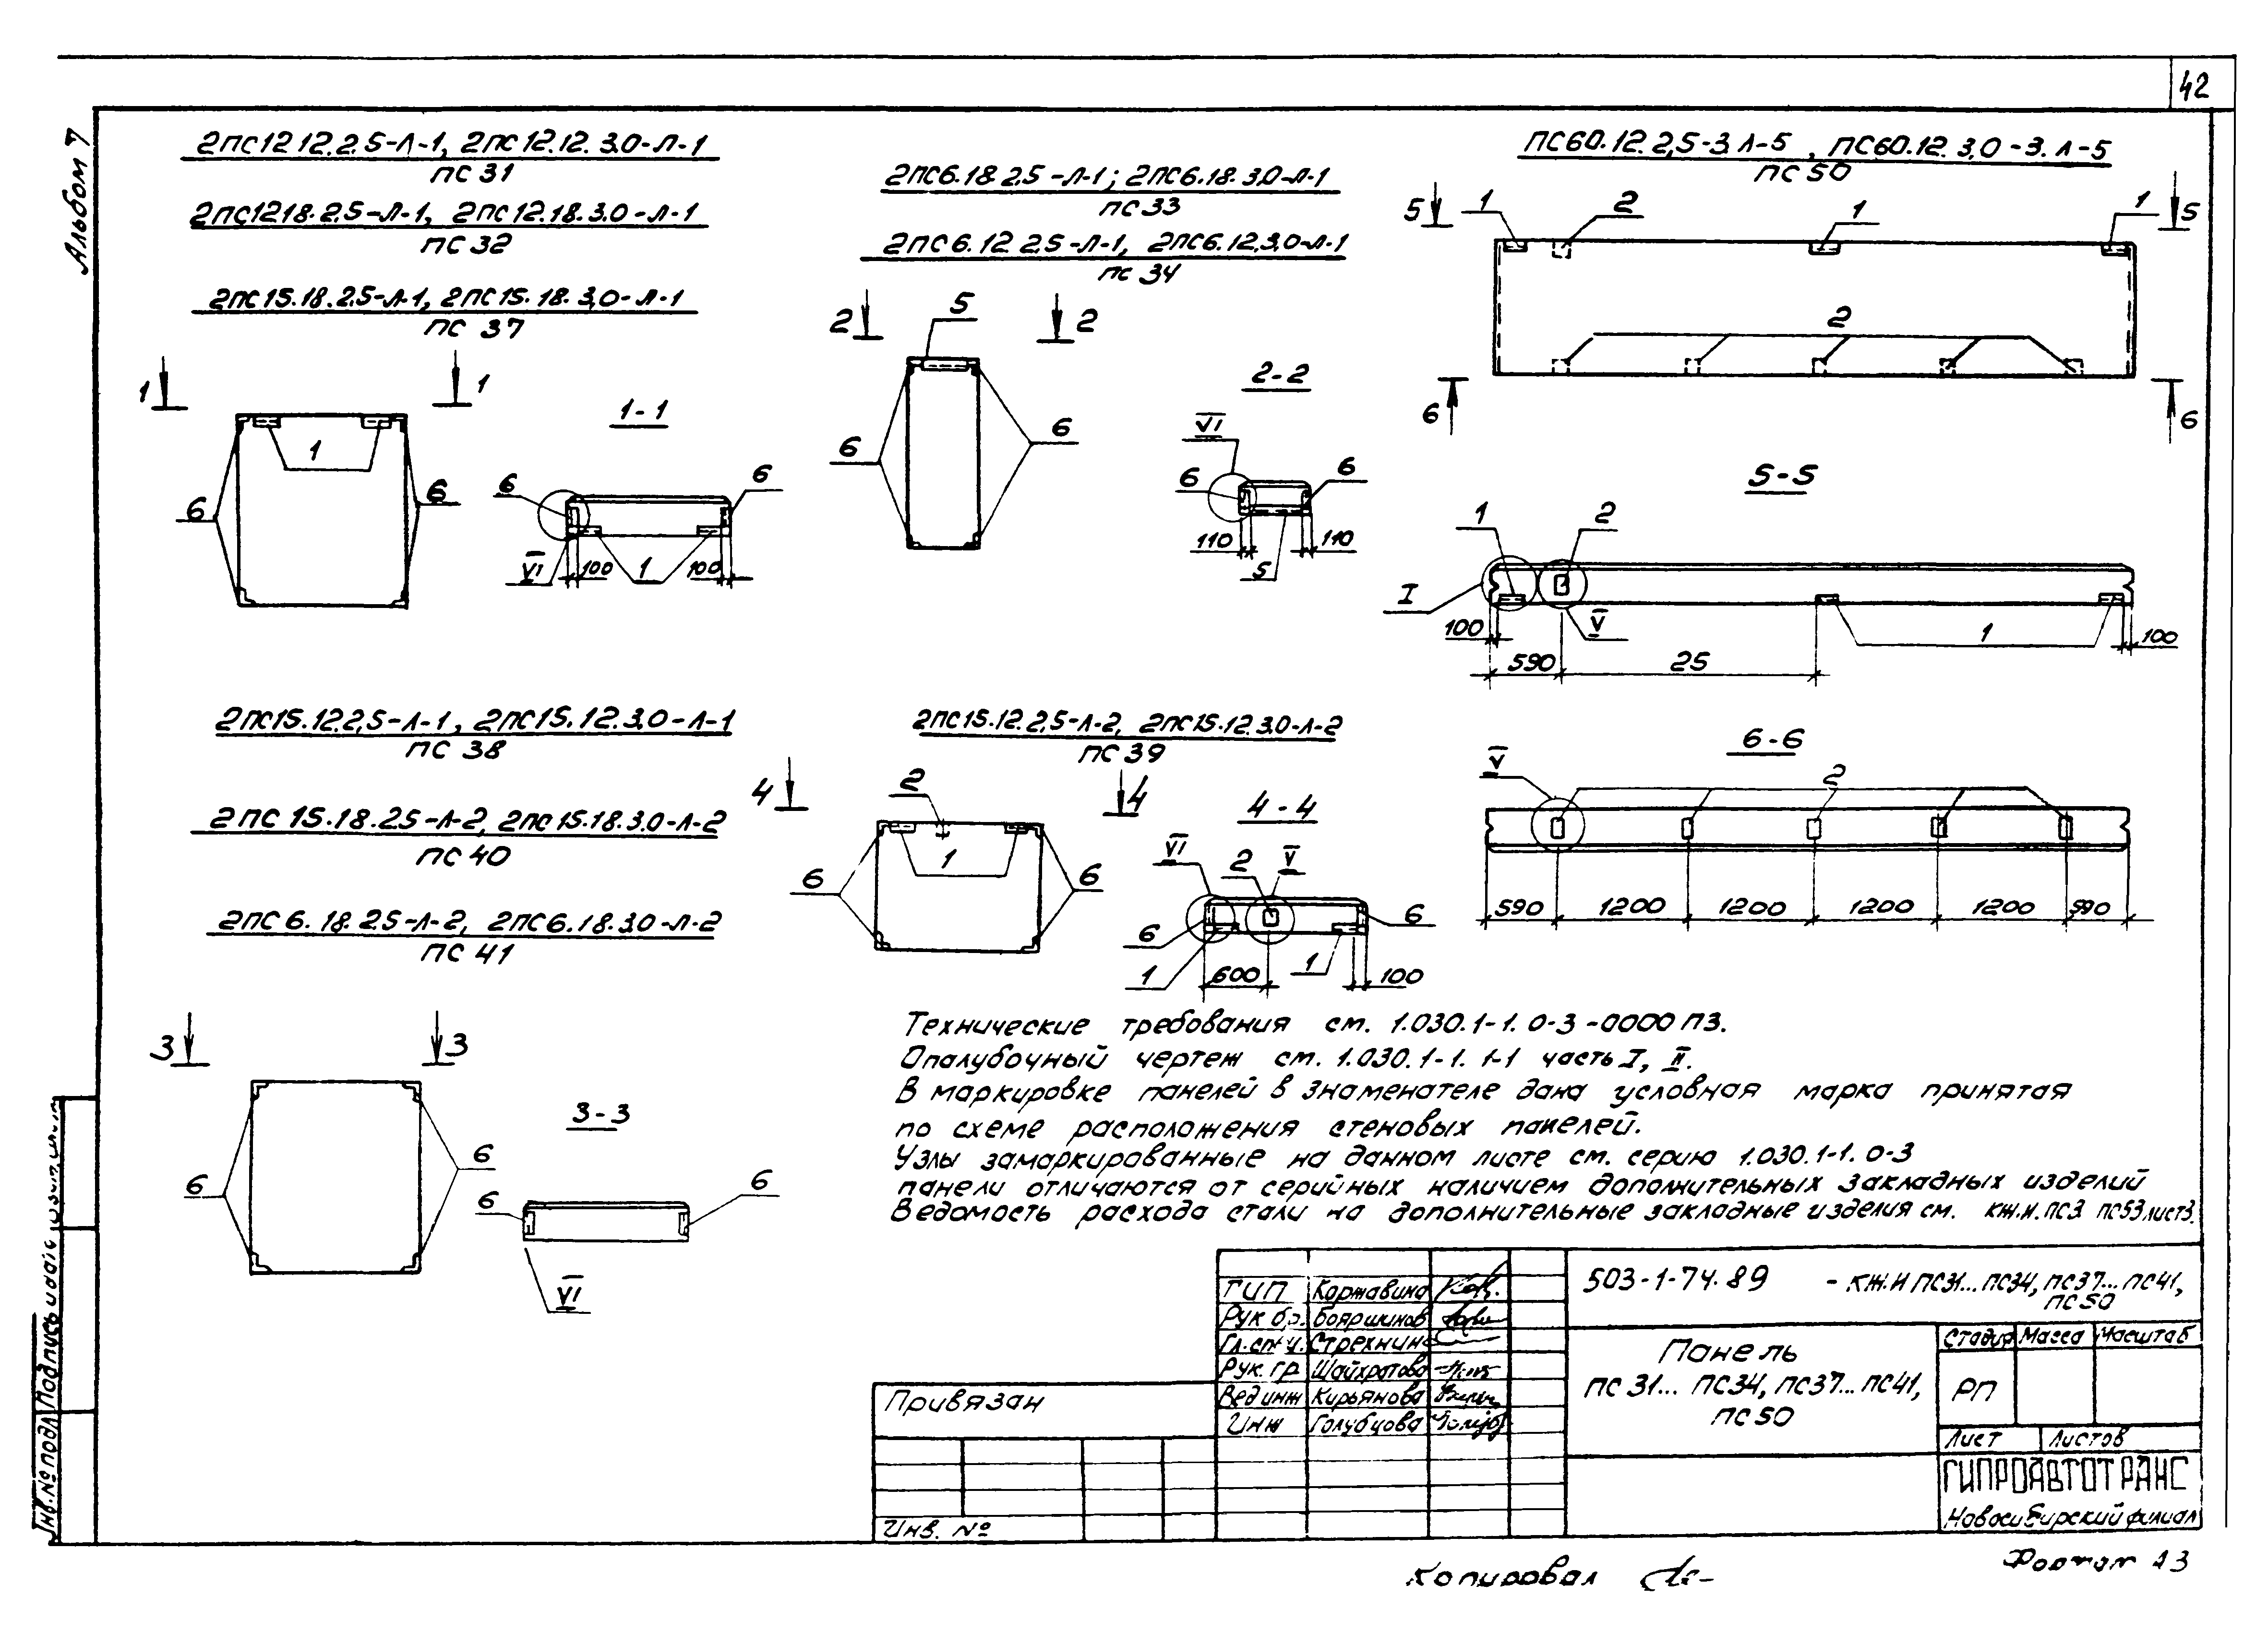 42
Альбом 7
2ПС12 12.2.5-Л-1, 2ПС12.12.3.0-Л-1
ПС 31
2ПС1218.2.5-Л-1, 2ПС12.18.3.0-Л-1
ПС 32
2ПС15.18.2.5-Л-1, 2ПС15.18.3,0-Л-1
ПС 37
1 1
1
6 6
1-1
6 6
VI 100 1 100
2ПС6.18 2.5-Л-1; 2ПС6.18.3,0-Л-1
ПС 33
2ПС6.12 2.5-Л-1, 2ПС6.12.3,0-Л-1
ПС 34
2 5 2
6 6
2-2
VI
6 6
110 5 110
ПС60.12.2,5-3 Л-5, ПС60.12.3,0-3.Л-5
ПС 50
5 1 2 1 1 5
2
6 6
5-5
1 2
I V
100 1 100
590 25
6-6
V 2
590 1200 1200 1200 1200 590
2ПС15.12.2,5-Л-1, 2ПС15.12.3.0-Л-1
ПС 38
2ПС 15.18.2.5-Л-2, 2ПС15.18.3.0-Л-2
ПС 40
2ПС 6. 18. 2.5-Л-2, 2ПС6.18.3.0-Л-2
ПС 41
3 3
6 6
3-3
6 6
VI
2ПС15.12.2,5-Л-2, 2ПС15.12.3.0-Л-2
ПС 39
4 2 4
1
6 6
4-4
VI 2 V
6 6
1 600 1 100
Технические требования см. 1.030.1-1. 0-3-0000 ПЗ.
Опалубочный чертеж см. 1.030.1-1. 1-1 часть I, II.
В маркировке панелей в знаменателе дана условная марка принятая
по схеме расположения стеновых панелей.
Узлы замаркированные на данном листе см. серию 1.030.1-1. 0-3
панели отличаются от серийных наличием дополнительных закладных изделий
Ведомость расхода стали на дополнительные закладные изделия см. кж.и.пс3 пс53 лист3.
503-1-74.89 - кж.и пс31... пс34, пс37... пс41,
пс50
ГИП Коржавина
Рук бр. Бояршинов
Гл.спец. Стрехнин
Рук. гр Шайхратова
Вед инж Кирьянова
Инж Голубцова
Панель
пс 31... пс34, пс37... пс41,
пс50
Стадия Масса Масштаб
РП
Лист Листов
ГИПРОАВТОТРАНС
Новосибирский филиал
Привязан
Инв. №
Инв.№ подл Подпись и дата
Копировал
Формат А3